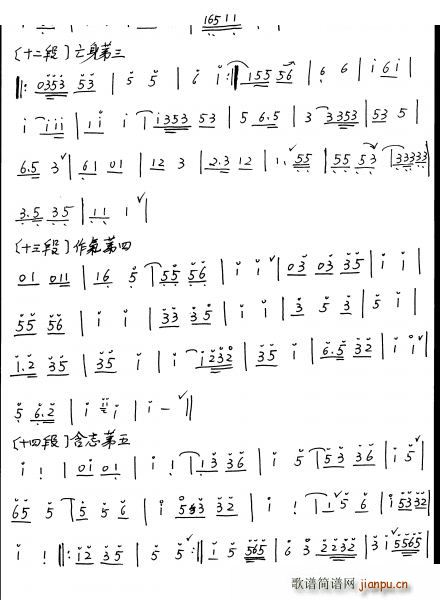 16511
[十二段]亡身第三
‖: 0353 53 | 5 5 | i i :‖ 155 56 | 6 6 | i 6 i |
i i i i | 1 i i | i353 53 | 5 6.5 | 3 3353 | 53 5 |
6.5 3 | 61 01 | 12 3 | 2.3 12 | 1. 55 | 55 53 | 33333
3.5 35 | 11 1 ‖
[十三段]作氣第四
01 011 | 16 5 | 55 56 | i i | 03 03 35 | i i |
55 56 | i i | 33 35 | i i | 3 5 3 | 5 i |
1.2 35 | 35 i | i232 | 35 i | 6.5 32 | i i |
5 6.2 | i i i | i – ‖
[十四段]含志第五
i ! | 0i 01 | i ! | 13 36 | i 5 | 53 36 | i 5 |
65 5 | 5 5 6 | i 543 32 | i ! | 1 5 6 | i5332
i ! ‖: i2 35 | 5 5 :‖ i 5 565 | 6 3 2232 | 3 i 5565 |
歌谱简谱网 jianpu.cn